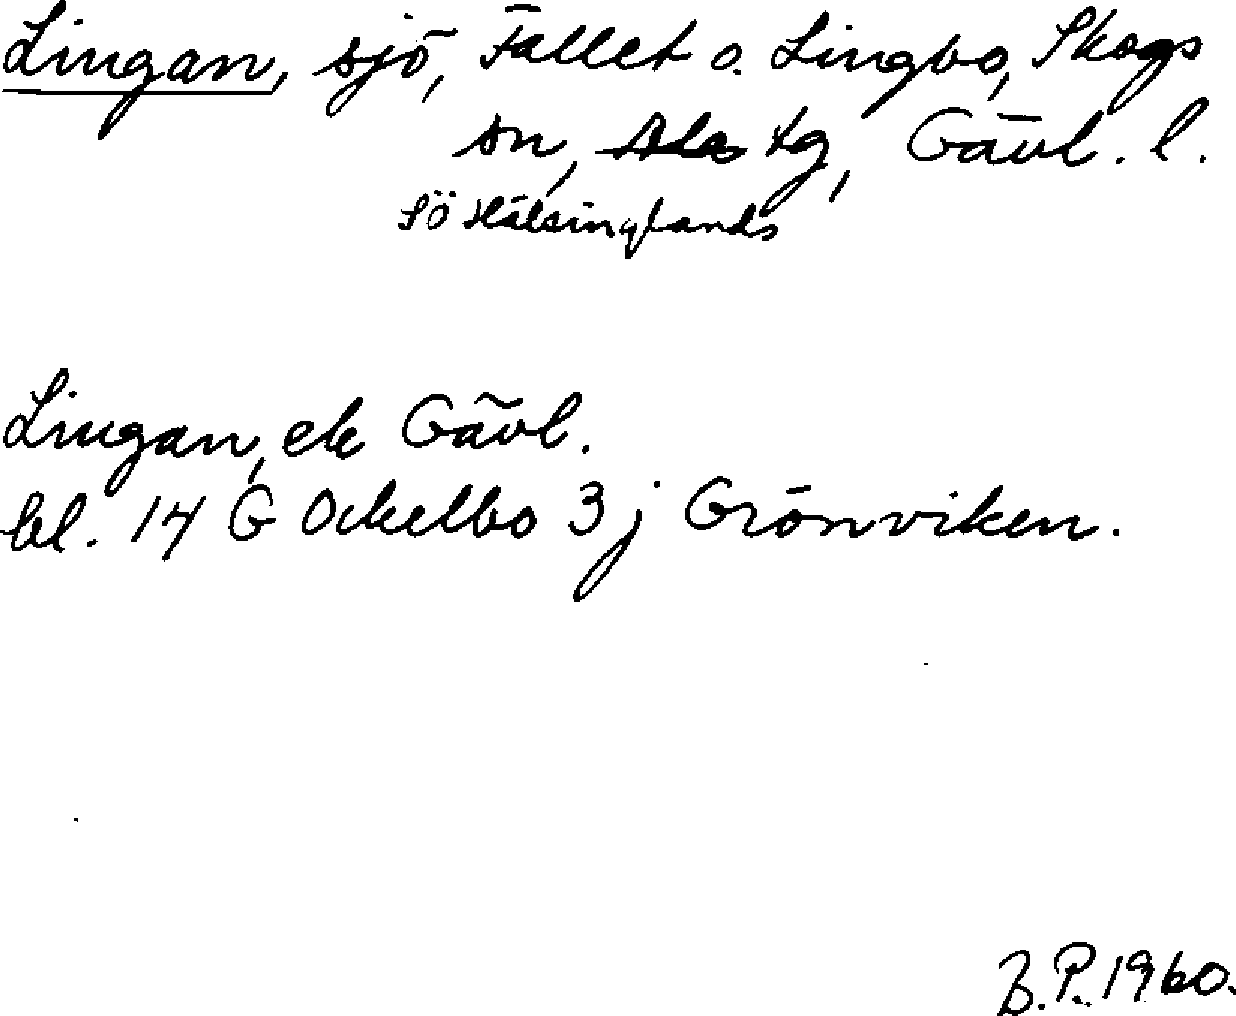 Lingan, sjö, Fallet o. Lingbo, Skogs
sn, Ala tg, Gävl. l.
Sö Hälsinglands
Lingan, ek Gävl.
bl. 14 G Ockelbo 3 j Grönviken.
B.P. 1960.